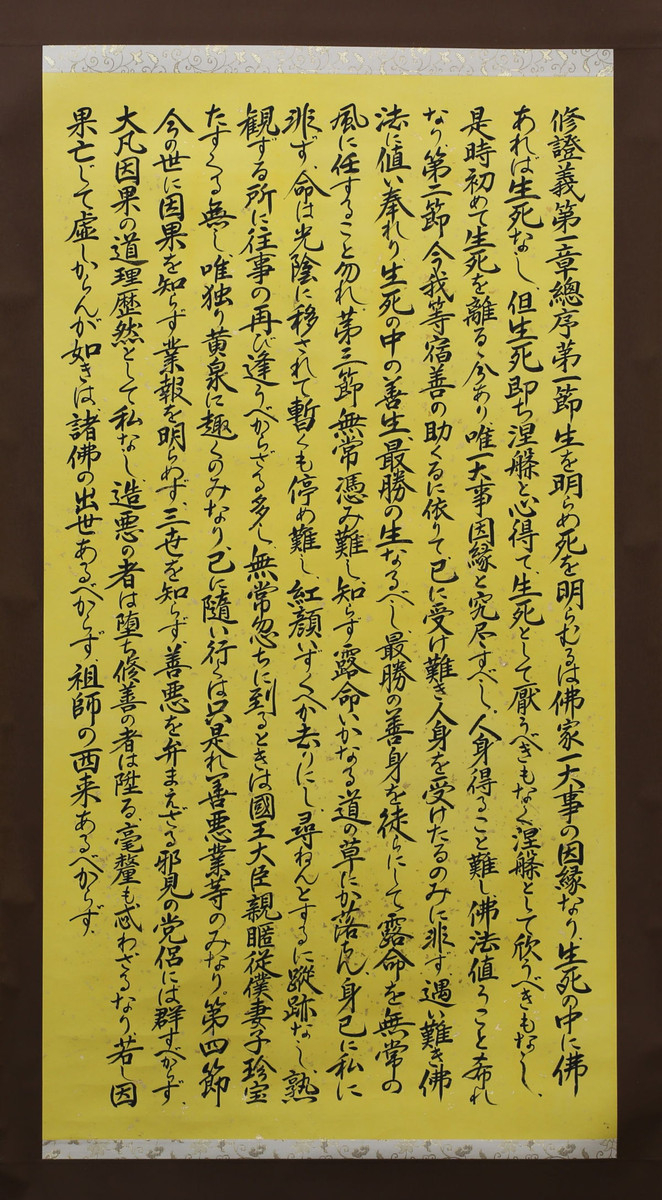 修證義第一章總序第一節生を明らめ死を明らむるは佛家一大事の因縁なり、生死の中に佛
あれば生死なし、但生死即ち涅槃と心得て、生死として厭うべきもなく涅槃として欣うべきもなし、
是時初めて生死を離るゝ分あり唯一大事因縁と究尽すべし、人身得ること難し佛法値うこと希れ
なり第二節今我等宿善の助くるに依りて、已に受け難き人身を受けたるのみに非ず、遇い難き佛
法に値い奉れり、生死の中の善生、最勝の生なるべし、最勝の善身を徒らにして露命を無常の
風に任すること勿れ、第三節無常憑み難し、知らず露命いかなる道の草にか落ちん、身已に私に
非ず、命は光陰に移されて暫くも停め難し、紅顔いずくへか去りにし、尋ねんとするに蹤跡なし、熟
観ずる所に往事の再び逢うべからざる多し、無常忽ちに到るときは國王大臣親暱従僕妻子珍宝
たすくる無し、唯独り黄泉に趣くのみなり、己に隨い行くは只是れ善悪業等のみなり。第四節
今の世に因果を知らず業報を明らめず、三世を知らず、善悪を弁まえざる邪見の党侶には群すべからず、
大凡因果の道理歴然として私なし、造悪の者は堕ち修善の者は陞る、毫釐も忒わざるなり、若し因
果亡じて虚しからんが如きは、諸佛の出世あるべからず、祖師の西来あるべからず、